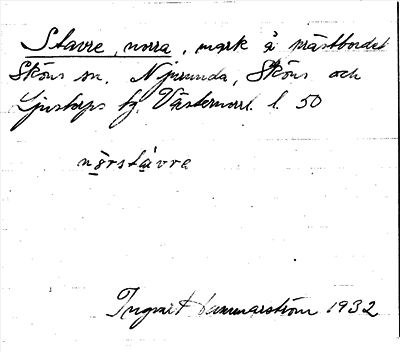 Stavre, norra, mark å prästbordet
Sköns sn. Njurunda, Sköns och
Ljustorps tg. Västernorrl. l. 50
nørstavra
Ingvart Hammarström 1932